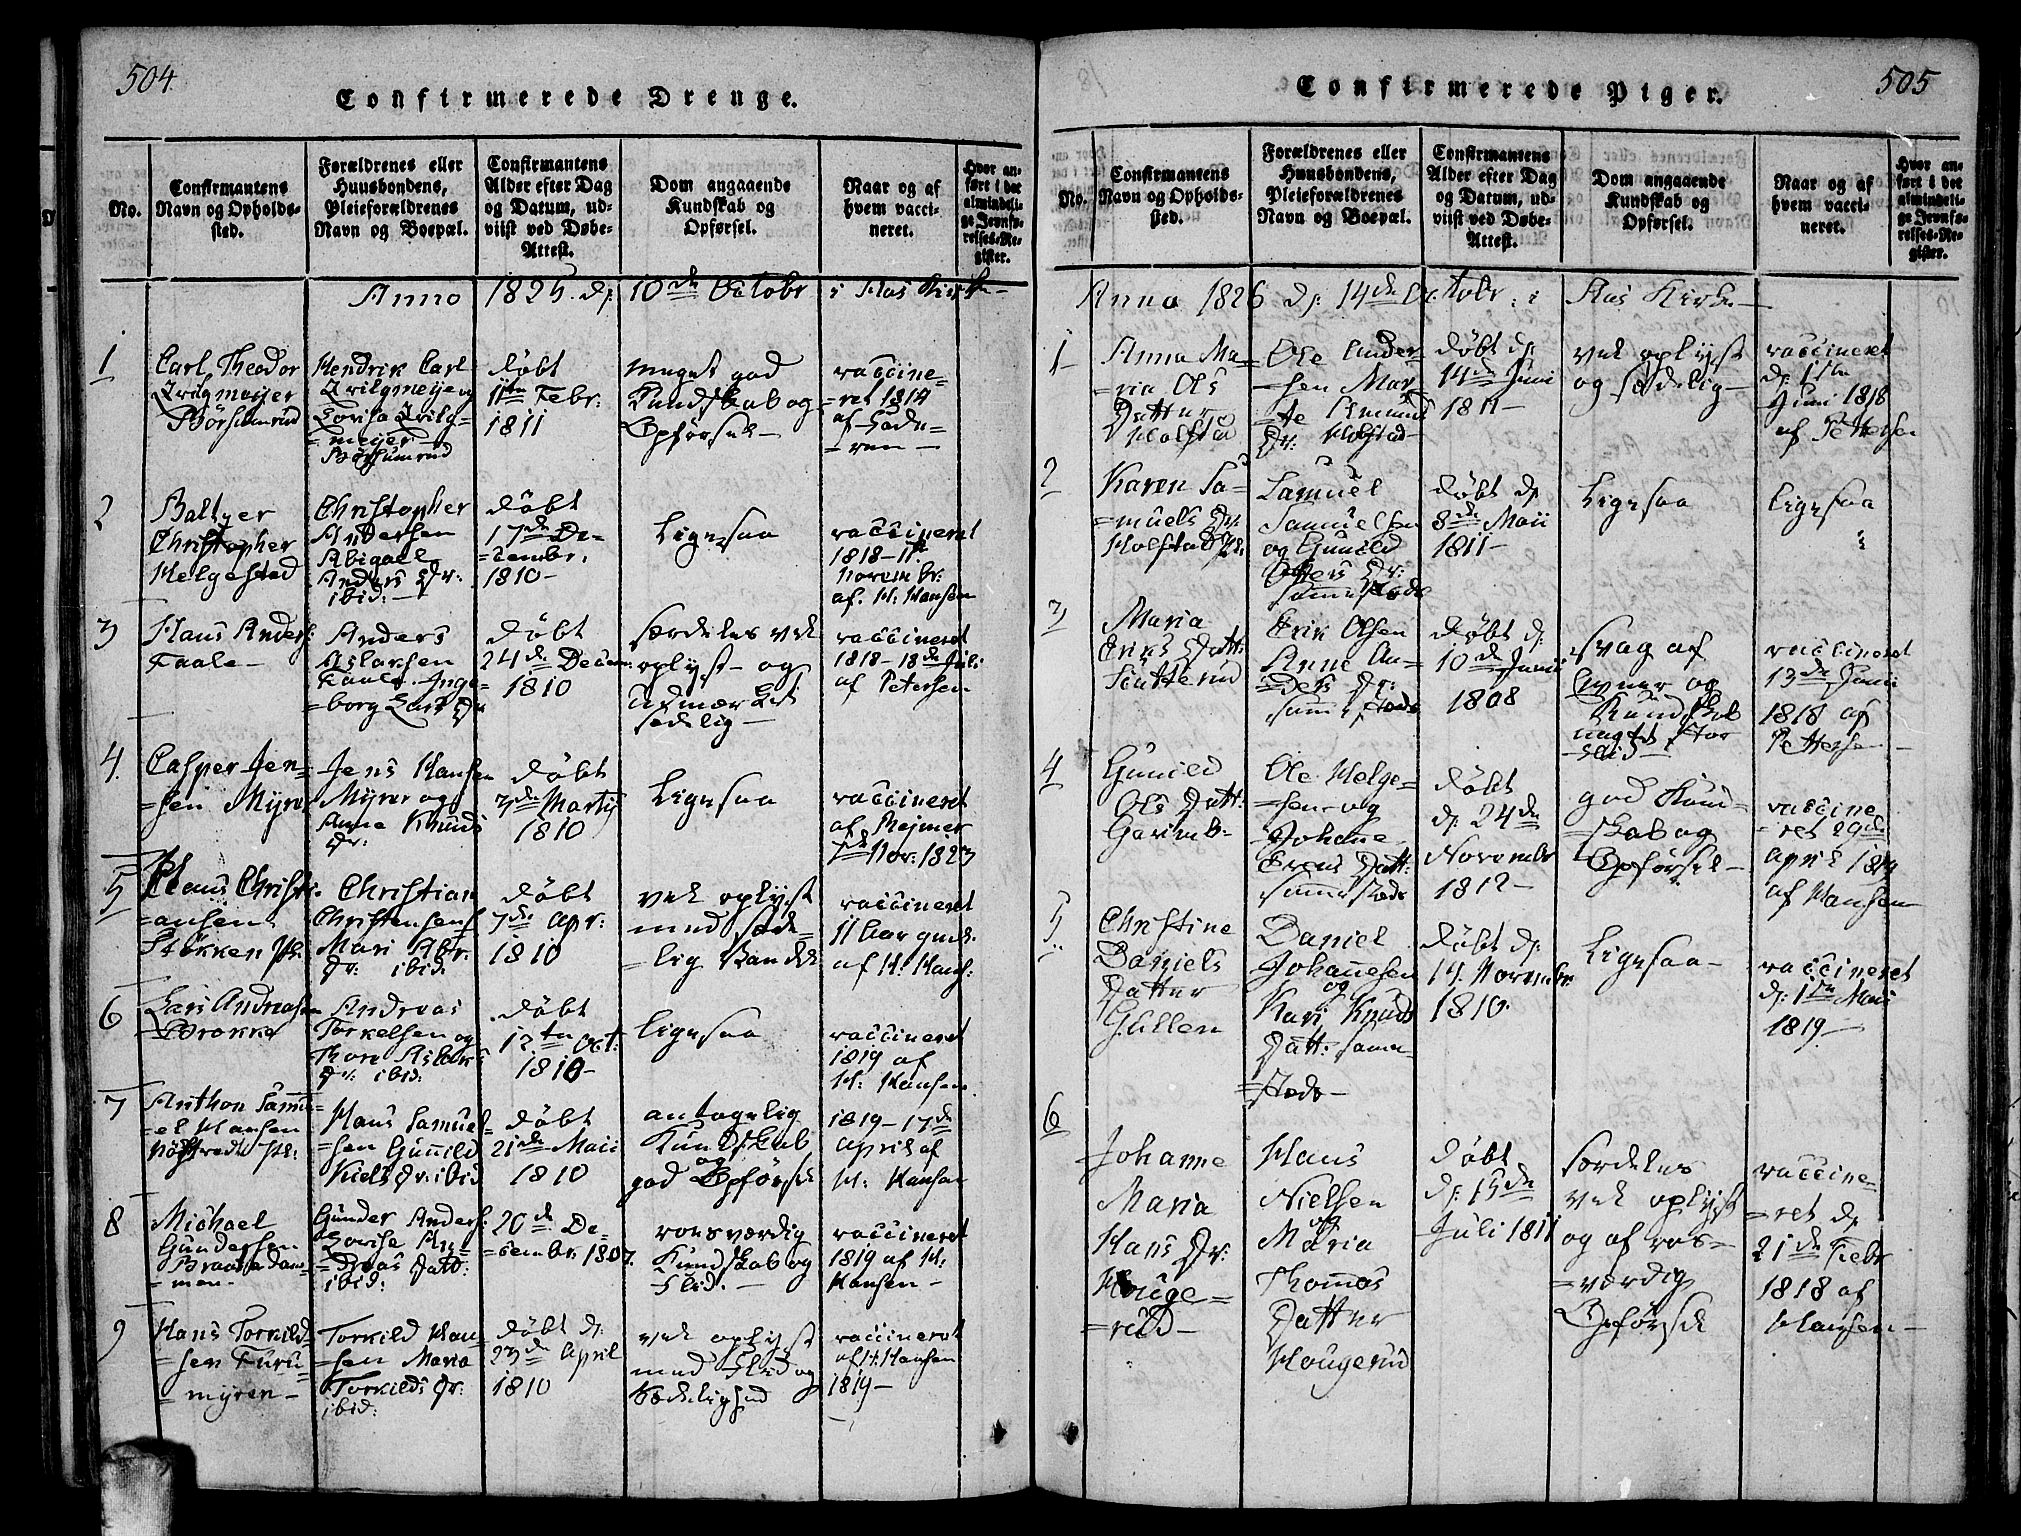 504.
Confirmerede Drenge.
No.
Confirmantens
Navn og Opholds-
sted.
Forældrenes eller
Huusbondens,
Pleieforældrenes
Navn og Boepæl.
Confirmantens
Alder efter Dag
og Datum, ud-
viist ved Døbe-
Attest.
Dom angaaende
Kundskab og
Opførsel.
Naar og af
hvem vacci-
neret.
Hvor an-
ført i det
almindeli-
ge Jevnfø-
relses-Re-
gister.
Anno 1825 d: 10de Octobr i Aas Kirke
1
Carl Theodor
Qvilgmeyer
Børsumrud
Hendrik Carl
Qvilgmeye og
Lovisa Qvilg=
=meyer
Børsumrud
døbt
11te Febr:
1811
meget god
Kundskab og
Opførsel-
vaccine=
=ret 1814
af
2
Baltzer
Christopher
Helgestad
Christopher
Andersen
Abigael
Anders Dr:
ibid:-
døbt
17de De-
=cembr.
1810-
Ligesaa
vaccineret
1818-11te
Novembr:
af. H: Hansen
3
Hans Anders:
Faale-
Anders
Aslaksen
Faale. Inge=
=borg Lars Dr
døbt
24de Decem:
1810
særdeles vel
oplyst og
udmærket
sædelig-
vaccineret
1818-18de Juli
af Petersen
4.
Casper Jen=
=sen Myrer
Jens Hansen
Myrer og
Anne Knuds
Dr:
døbt
7de Martij
1810
Ligesaa
vaccineret
af Rejmer
7de Nov: 1823
5
Claus Christi=
=ansen
Støkken
Christian
Christensen
Mari Abr:
Dr: ibid:
døbt
7de Apr:
1810
vel oplyst
med sæde=
=lig Vandel
vaccineret
11 Aar gml:
af H: Hans:
6
Lars Andreasen
Brokke
Andreas
Torkelsen og
Thore Aslaks
Dr: ibid:
døbt
12te Oct:
1810-
Ligesaa
vaccineret
1819 af
H: Hansen
7
Anthon Samu=
=el Hansen
Hans Samuel=
=sen Gunnild
Niels Dr: ibid
døbt
21de Maii
1810
antagelig
Kundskab
og
god Opførsel
1819-17de
April af
H: Hansen
8
Michael
Gundersen
Gunder Anders:
Lovise An=
=dreas Datt:
ibid:
20de De=
=cembr 1807.
roesværdig
Kundskab og
Flid.-
vaccineret
1819 af H:
Hansen-
9
Hans Torkild=
=sen Furu=
=myren-
Torkild Han=
=sen Maria
Torkilds Dr:
ibid:
døbt d:
23de April
1810
vel oplyst
med Flid og
Sædelighed
vaccineret
af H. Hansen
1819-
505
Confirmerede Piger.
No.
Confirmantens
Navn og Opholds-
sted.
Forældrenes eller
Huusbondens,
Pleieforældrenes
Navn og Boepæl.
Confirmantens
Alder efter Dag
og Datum, ud-
viist ved Døbe-
Attest.
Dom angaaende
Kundskab og
Opførsel.
Naar og af
hvem vacci-
neret.
Hvor an-
ført i det
almindeli-
ge Jevnfø-
relses-Re-
gister.
Anno 1826 d: 14de Octobr: i Aas Kirke-
1
Anna Ma=
=ria Ols
Datter
Holstad
Ole Ander=
=sen Mar=
=te Amund
Dr: Holstad-
døbt d:
14de Juni
1811-
vel oplyst
og sædelig-
vaccineret
d: 11te
Juni 1818
af Pettersen
2
Karen Sa=
=muels Dr:
Holstad
Samuel
Samuelsen
og Gunild
Dr:
sammesteds
døbt d:
8de Maii
1811-
Ligesaa
Ligesaa
3
Maria
Erics Datt:
Erik Olsen
Anne An=
=ders Dr:
sammesteds
døbt d:
10de Junii
1808
svag af
Evner og
Kundskab
uagtet stor
Flid-
vaccineret
13de Junii
1818 af
Pettersen-
4
Gunild
Ols Datt:
Ole Helge=
=sen og
Johanne
Datt:
sammesteds
døbt
d: 24de
Novembr
1812-
god Kund=
=skab og
Opførsel-
vaccine=
=ret 29de
April 1819
af Hansen
5
Christine
Daniels
Datter
Daniel
Johannesen
og
Kari Knuds
Datt: samme=
=steds-
døbt d:
14. Novembr:
1810.
Ligesaa-
vaccineret
d: 1de Maii
1819-
6
Johanne
Maria
Hans Dr:
Houge=
=rud-
Hans
Nielsen
og
Maria
Thomas
Datter
Hougerud
døbt
d: 15de
Juli 1811
særdeles
vel oplyst
og af roes=
=værdig
Opførsel
vaccine=
=ret d:
21de Febr
1818 af
Hansen-